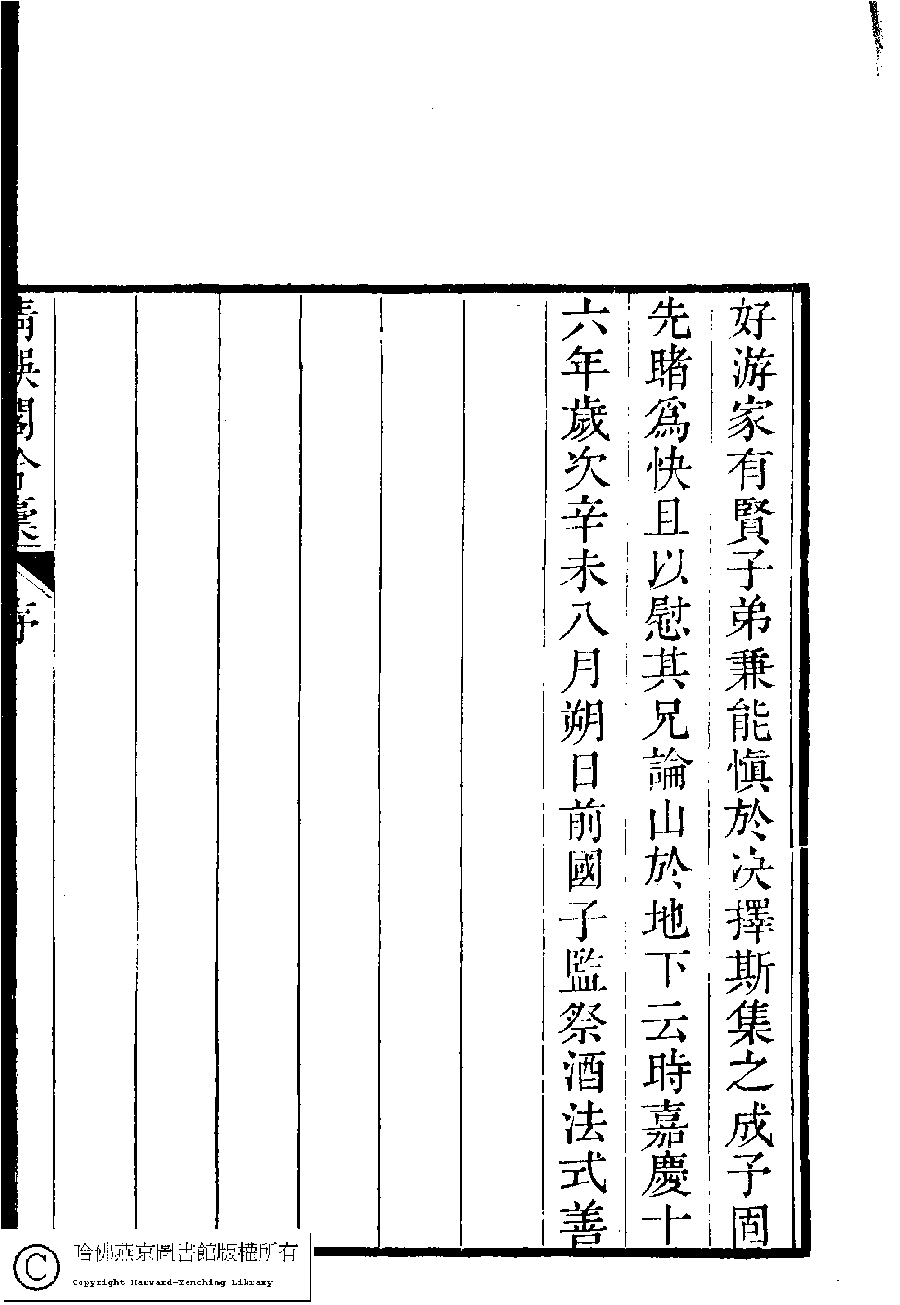 好游家有賢子弟兼能慎於决擇斯集之成予固
先睹爲快且以慰其兄論山於地下云時嘉慶十
六年歲次辛未八月朔日前國子監祭酒法式善
清娛閣合稾
序
哈佛燕京圖書館版權所有
Copyright Harvard-Yenching Library